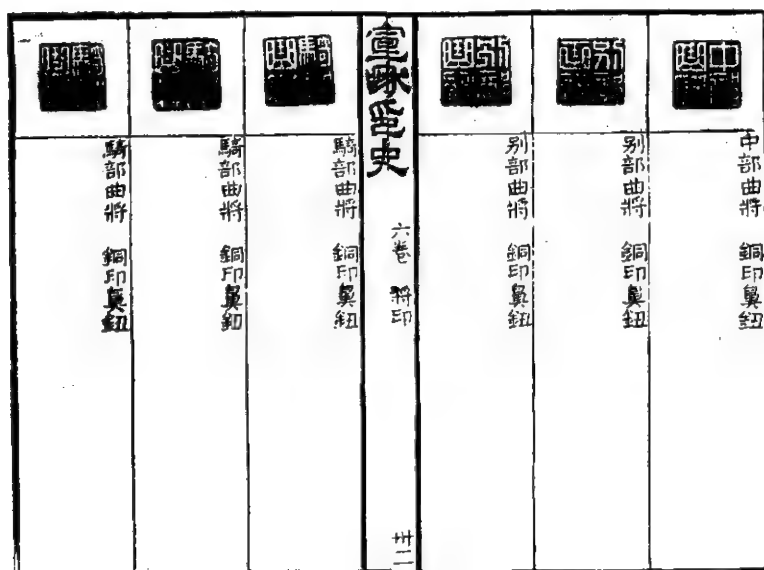 中部曲將 銅印鼻鈕
别部曲將 銅印鼻鈕
别部曲將 銅印鼻鈕
宣龢印史
六卷 將印
卅二
騎部曲將 銅印鼻鈕
騎部曲將 銅印鼻鈕
騎部曲將 銅印鼻鈕